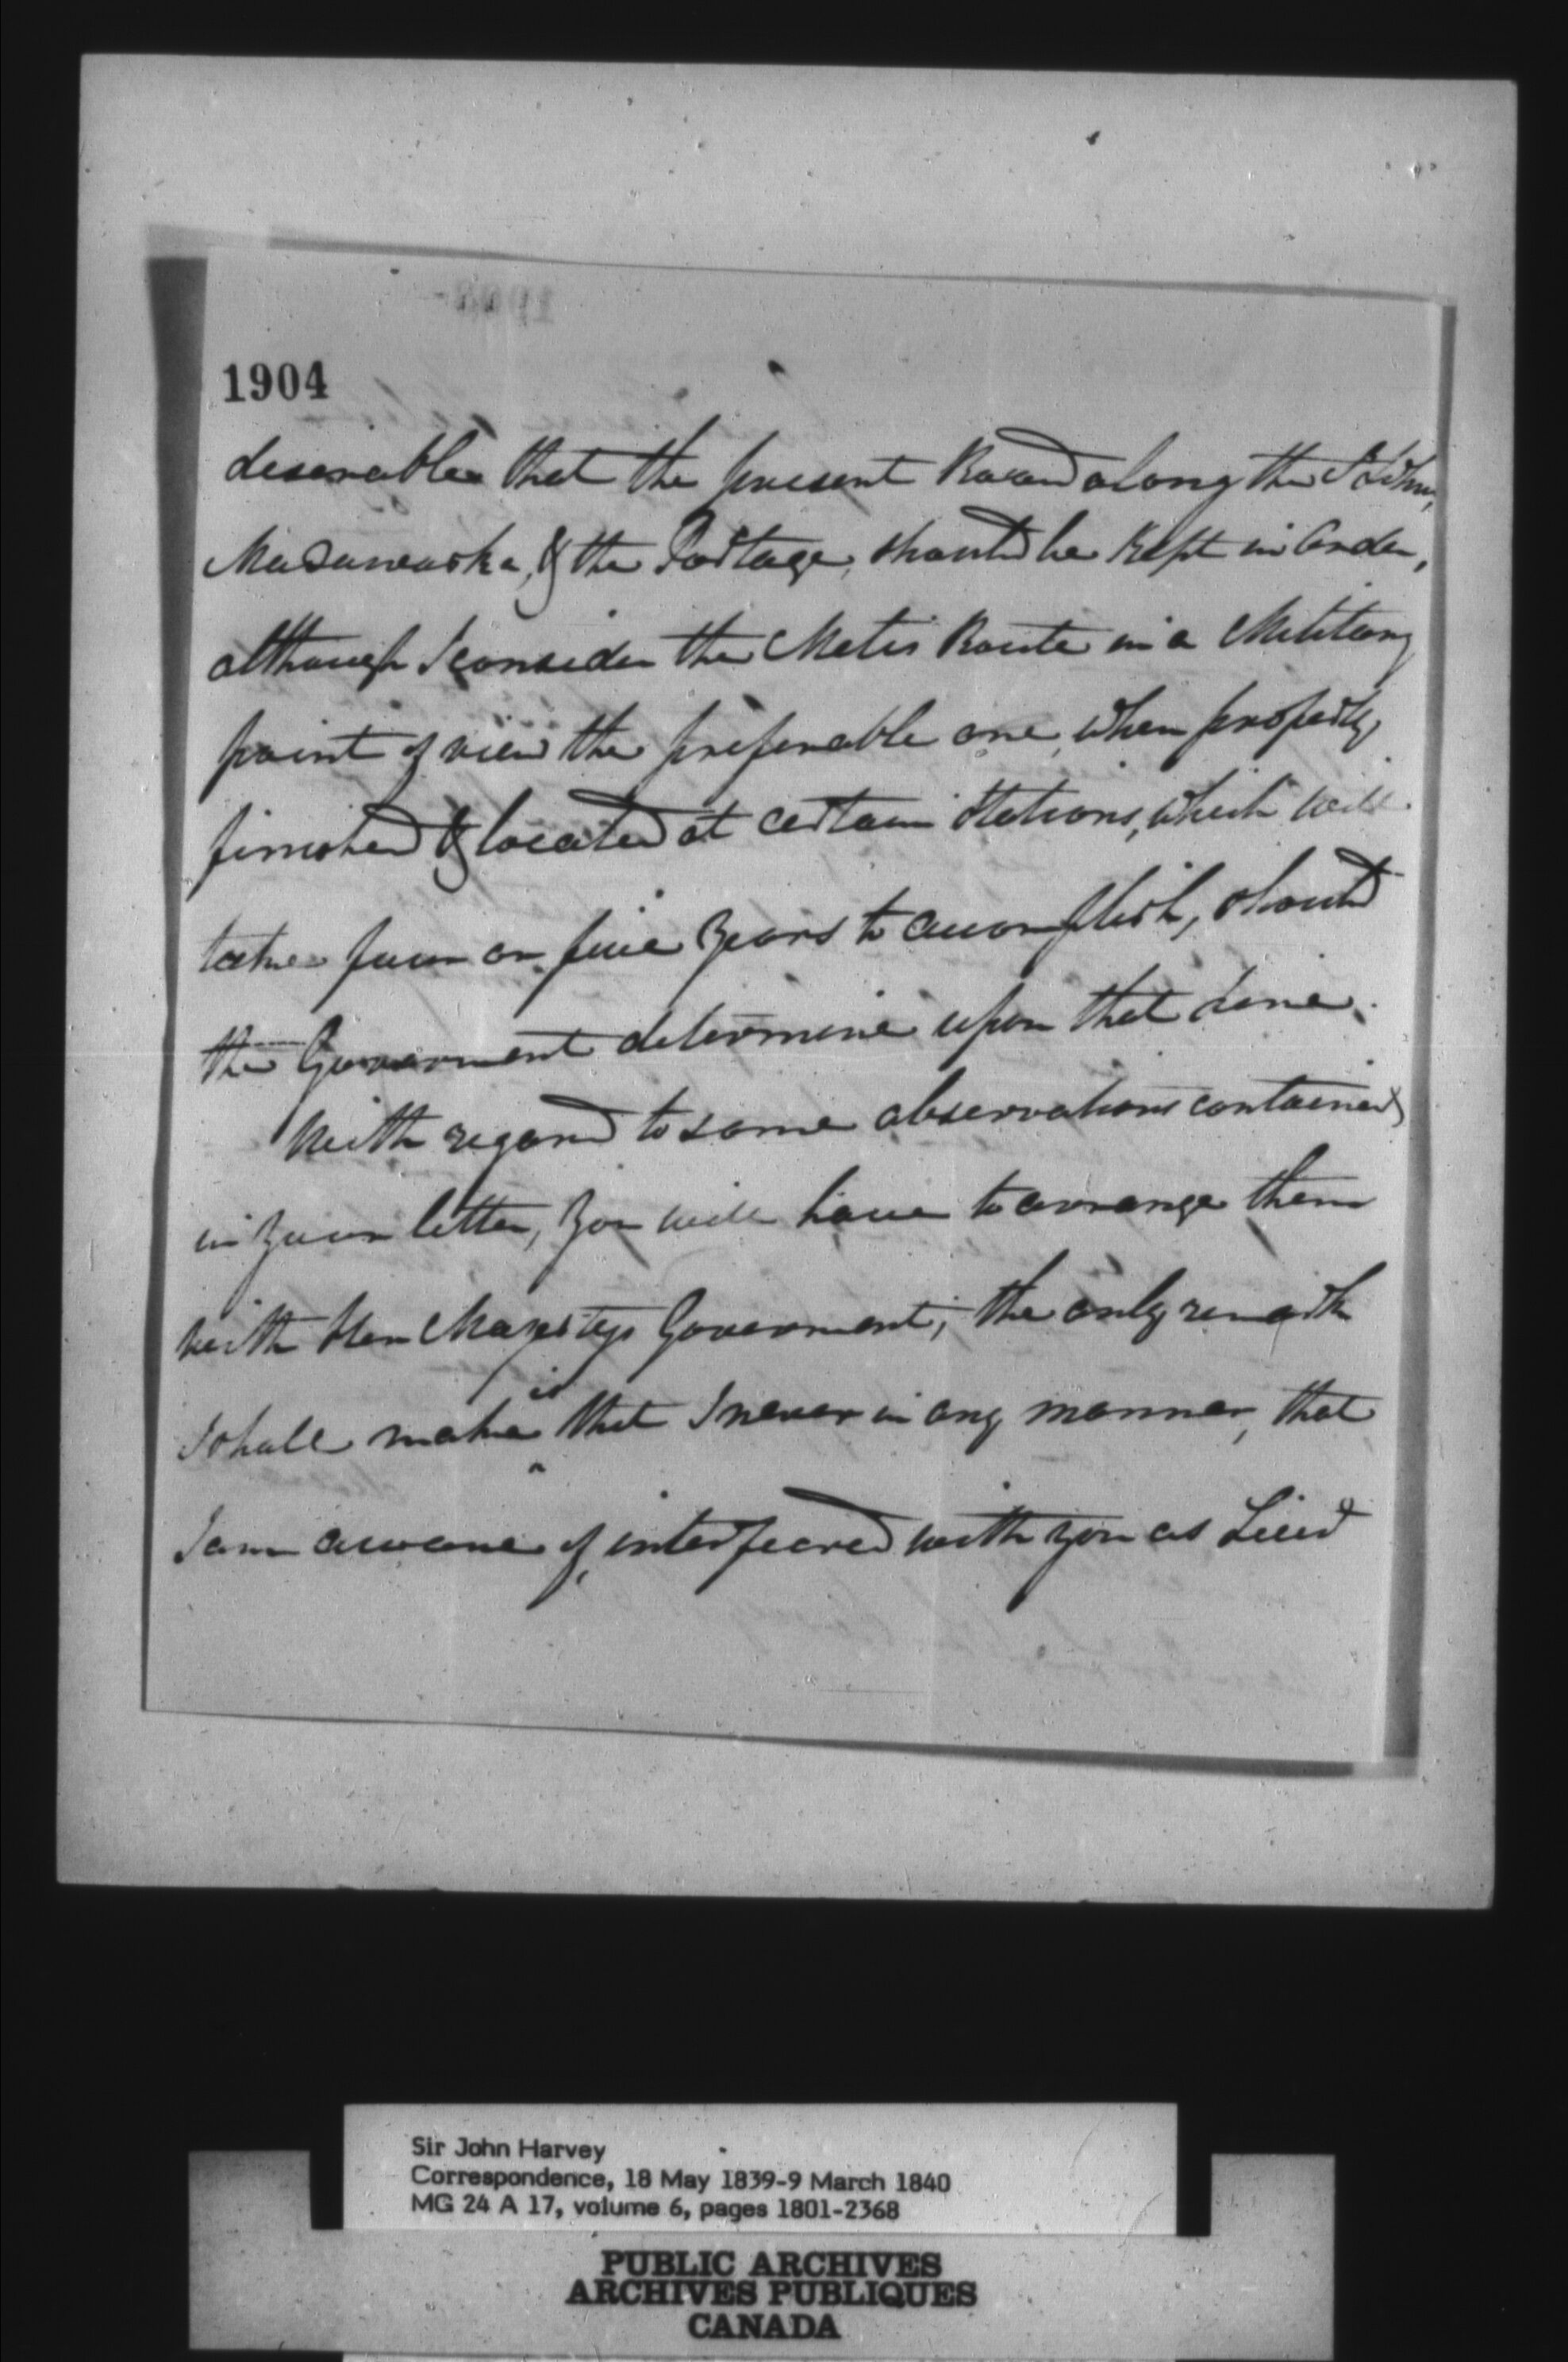 1904
desirable that the present Road along the St John,
Madawaska, & the Portage, should be kept in order,
although I consider the Metis Route in a Military
point of view the preferable one, when properly
finished & located at certain Stations, which will
take four or five years to accomplish, should
the Government determine upon that Line.
With regard to some observations contained
in your letter, you will have to arrange them
with Her Majestys Government; the only remark
I shall make is that I never in any manner, that
I am aware of, interfeared with you as Lieut
Sir John Harvey
Correspondence, 18 May 1839-9 March 1840
MG 24 A 17, volume 6, pages 1801-2368
PUBLIC ARCHIVES
ARCHIVES PUBLIQUES
CANADA